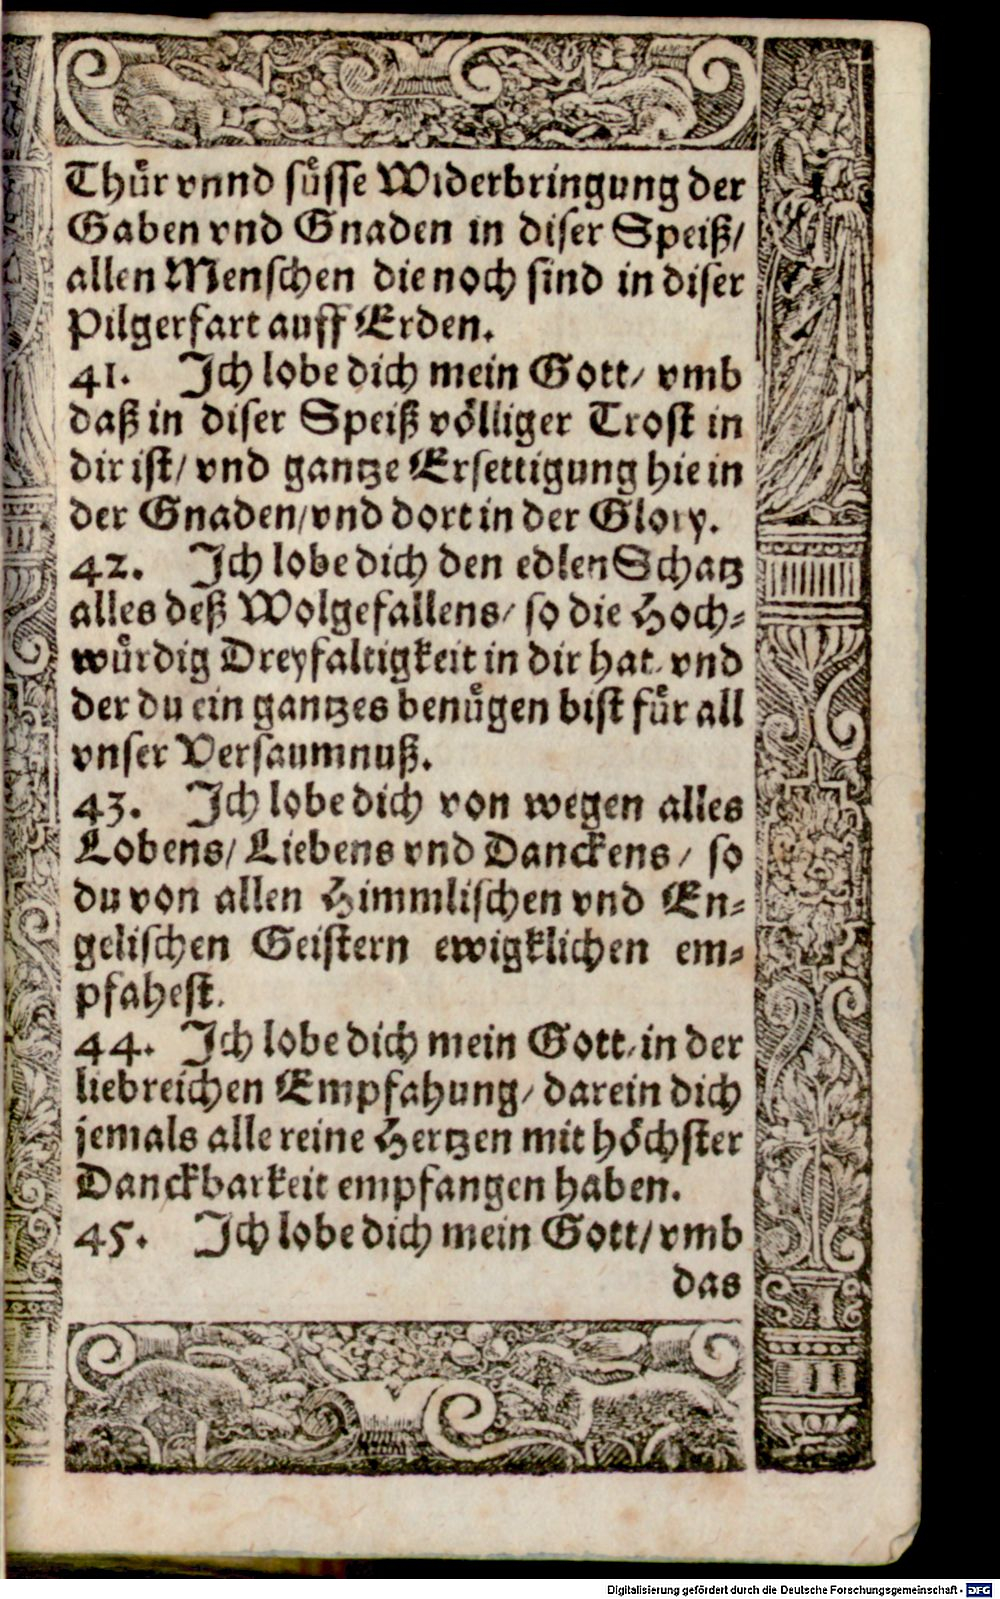 Thür vnnd süsse Widerbringung der
Gaben vnd Gnaden in diser Speiß/
allen Menschen die noch sind in diser
Pilgerfart auff Erden.
41. Ich lobe dich mein Gott/ vmb
daß in diser Speiß völliger Trost in
dir ist/ vnd gantze Ersettigung hie in
der Gnaden/ vnd dort in der Glory.
42. Ich lobe dich den edlen Schatz
alles deß Wolgefallens/ so die Hoch-
würdig Dreyfaltigkeit in dir hat/ vnd
der du ein gantzes benügen bist für all
vnser Versaumnuß.
43. Ich lobe dich von wegen alles
Lobens/ Liebens vnd Danckens/ so
du von allen Himmlischen vnd En-
gelischen Geistern ewigklichen em-
pfahest.
44. Ich lobe dich mein Gott/ in der
liebreichen Empfahung/ darein dich
jemals alle reine Hertzen mit höchster
Danckbarkeit empfangen haben.
45. Ich lobe dich mein Gott/ vmb
das
Digitalisierung gefördert durch die Deutsche Forschungsgemeinschaft - DFG